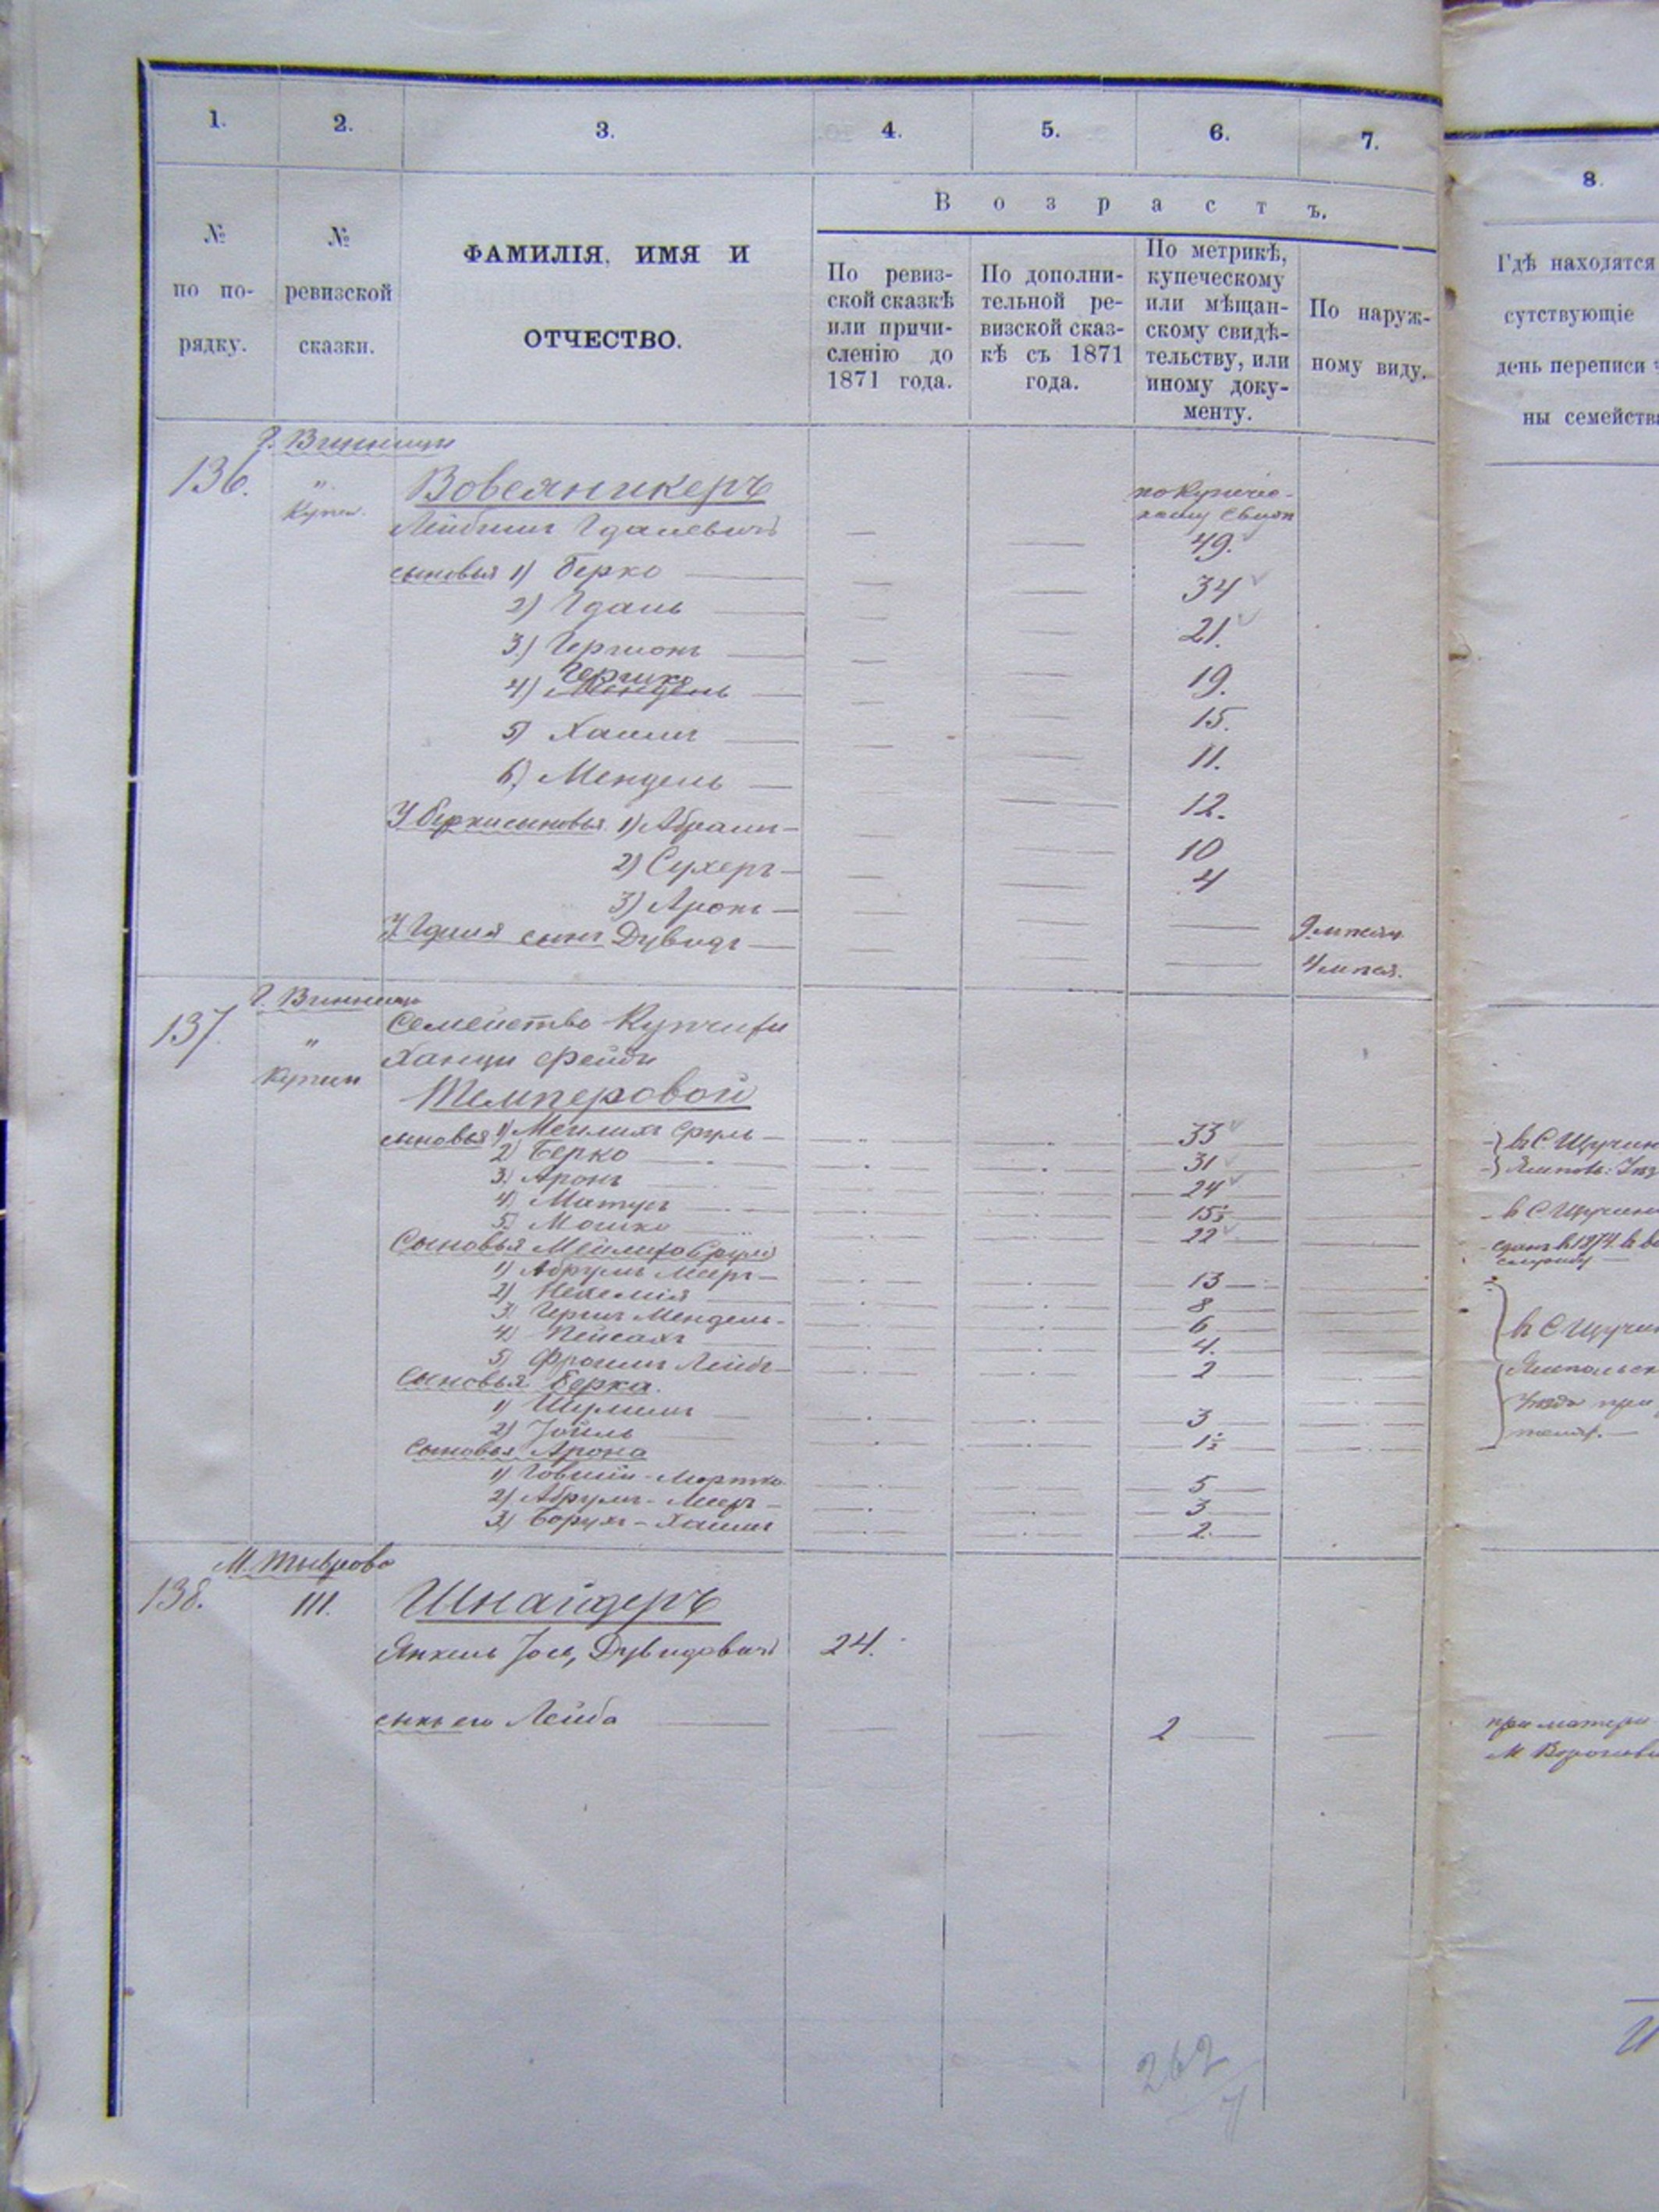 1. 2. 3. 4. 5. 6. 7.
8.
№
по по-
рядку.
№
ревизской
сказки.
ФАМИЛІЯ, ИМЯ И
ОТЧЕСТВО.
Возрастъ.
По ревиз-
ской сказкѣ
или причи-
сленію до
1871 года.
По дополни-
тельной ре-
визской сказ-
кѣ съ 1871
года.
По метрикѣ,
купеческому
или мѣщан-
скому свидѣ-
тельству, или
иному доку-
менту.
По наруж-
ному виду.
Гдѣ находятся
сутствующіе
день переписи
ны семейства
г. Винницы
136. " Вовсяникеръ
Купец.
Лейбишъ Гдалевичъ — — 49.
сыновья 1) Берко — — 34
2) Гдаль — — 21.
3) Гершонъ — — 19.
4) Гершко — — 15.
5) Хаимъ — — 11.
6) Мендель — — 12.
У Берки сыновья 1) Абрамъ — — 10
2) Сухеръ — — 4
3) Аронъ — — —
У Гдаля сынъ Дувидъ — — —
г. Винницы
137. " Семейство Купчихи
Купец
Ханци Фейги
Темперовой
сыновья 1) Мейлихъ Сруль — 33
2) Берко — 31
3) Аронъ — 24
4) Матусъ — 15½
5) Мошко — 22
Сыновья Мейлиха Сруля
1) Абрумъ Мееръ — 13
2) Нехемія — 8
3) Гершъ Мендель — 6
4) Пейсахъ — 4.
5) Фроимъ Лейбъ — 2
Сыновья Берка.
1) Шулимъ — 3
2) Іойль — 1½
Сыновья Арона
1) Говшій-Мортко — 5
2) Абрумъ-Мееръ — 3
3) Борухъ-Хаимъ — 2.
М. Тыврова
138. 111. Шнайдеръ
Янкель Іосе, Дувидовичъ 24.
сынъ его Лейба — — 2 —
при матери
262